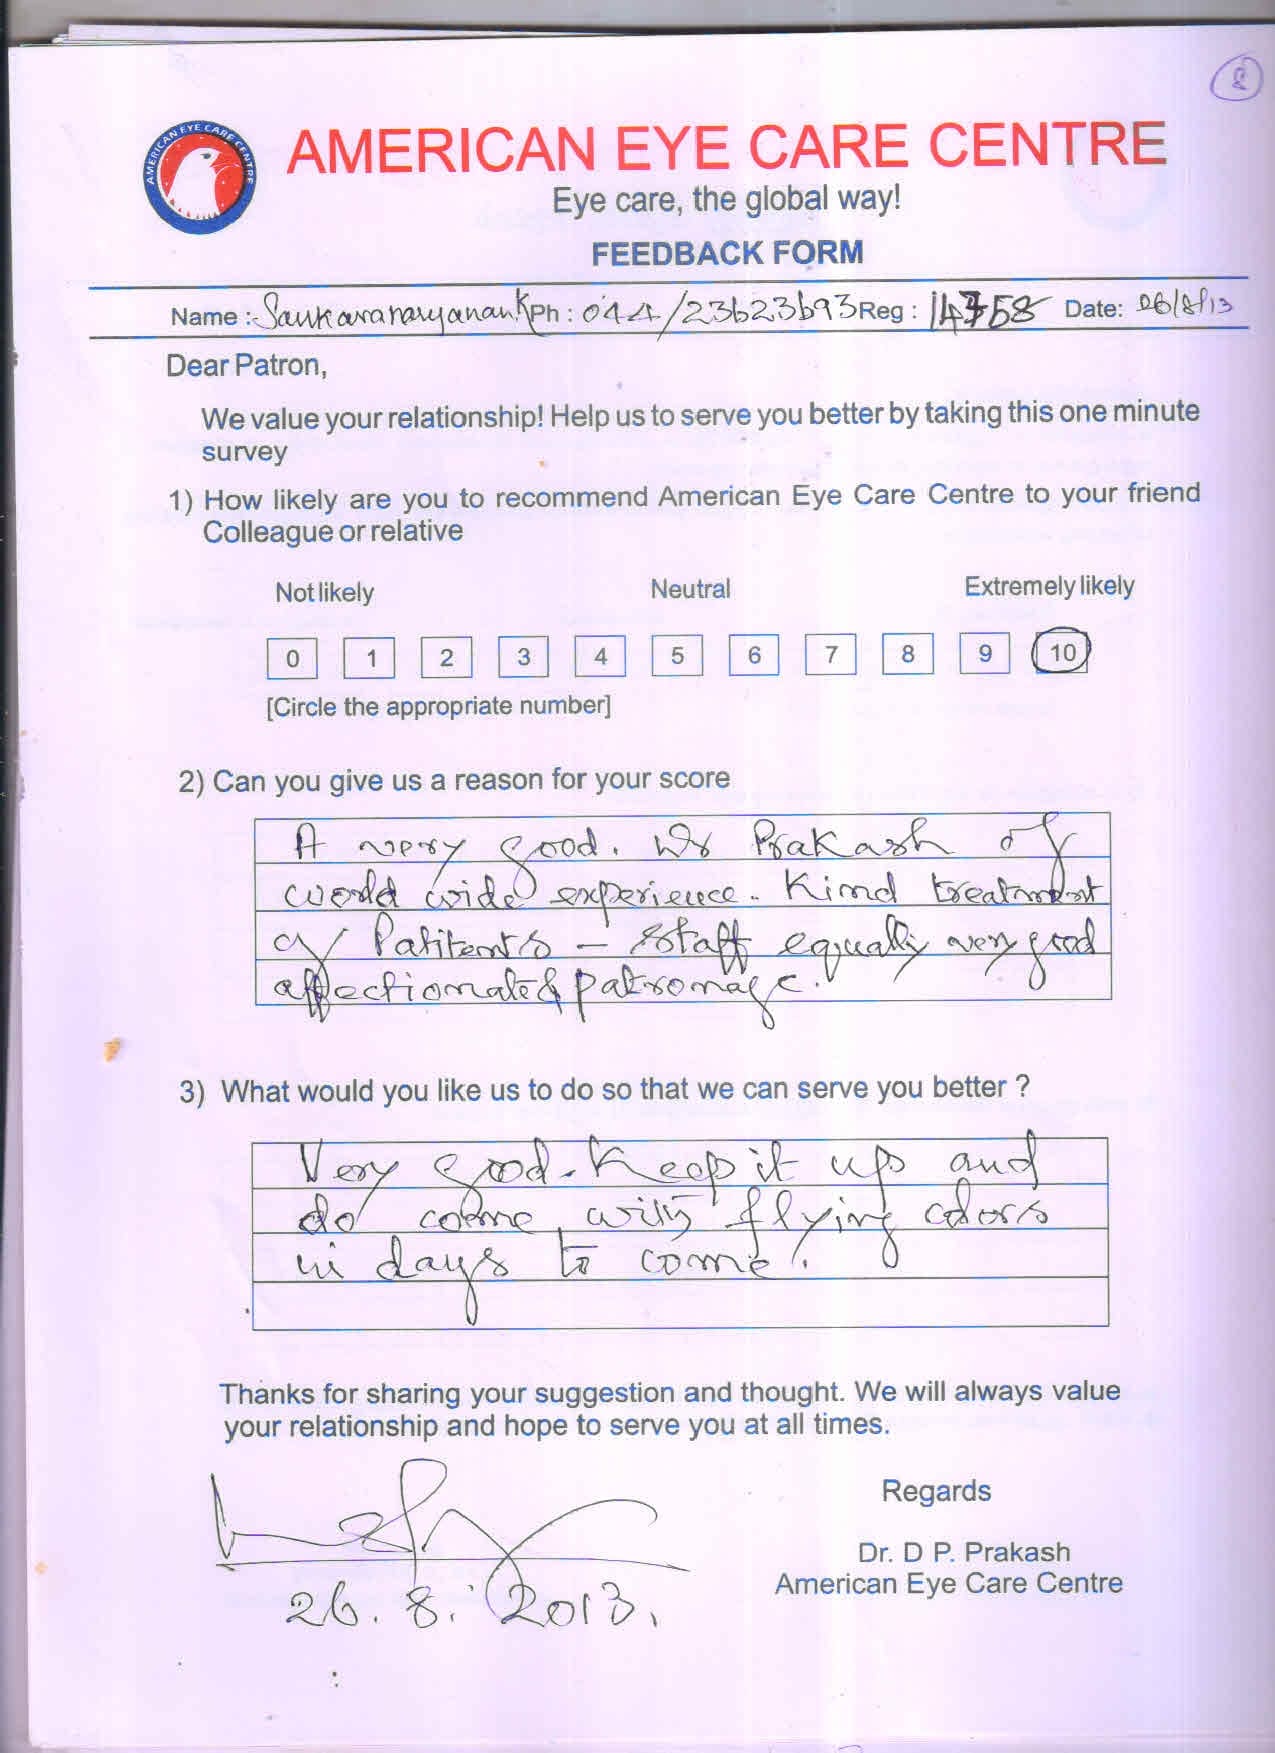 AMERICAN EYE CARE CENTRE
AMERICAN EYE CARE CENTRE
Eye care, the global way!
FEEDBACK FORM
Name : Sankaranarayanan K Ph : 044/23623693 Reg : 14758 Date: 26/8/13
Dear Patron,
We value your relationship! Help us to serve you better by taking this one minute
survey
1) How likely are you to recommend American Eye Care Centre to your friend
Colleague or relative
Not likely Neutral Extremely likely
0 1 2 3 4 5 6 7 8 9 10
[Circle the appropriate number]
2) Can you give us a reason for your score
A very good. Dr Prakash of
world wide experience. Kind treatment
of Patitents - Staff equally very good
affectionate & patronage.
3) What would you like us to do so that we can serve you better ?
Very good. Keep it up and
do come with flying colors
in days to come.
Thanks for sharing your suggestion and thought. We will always value
your relationship and hope to serve you at all times.
Regards
Dr. D P. Prakash
American Eye Care Centre
26.8.2013.